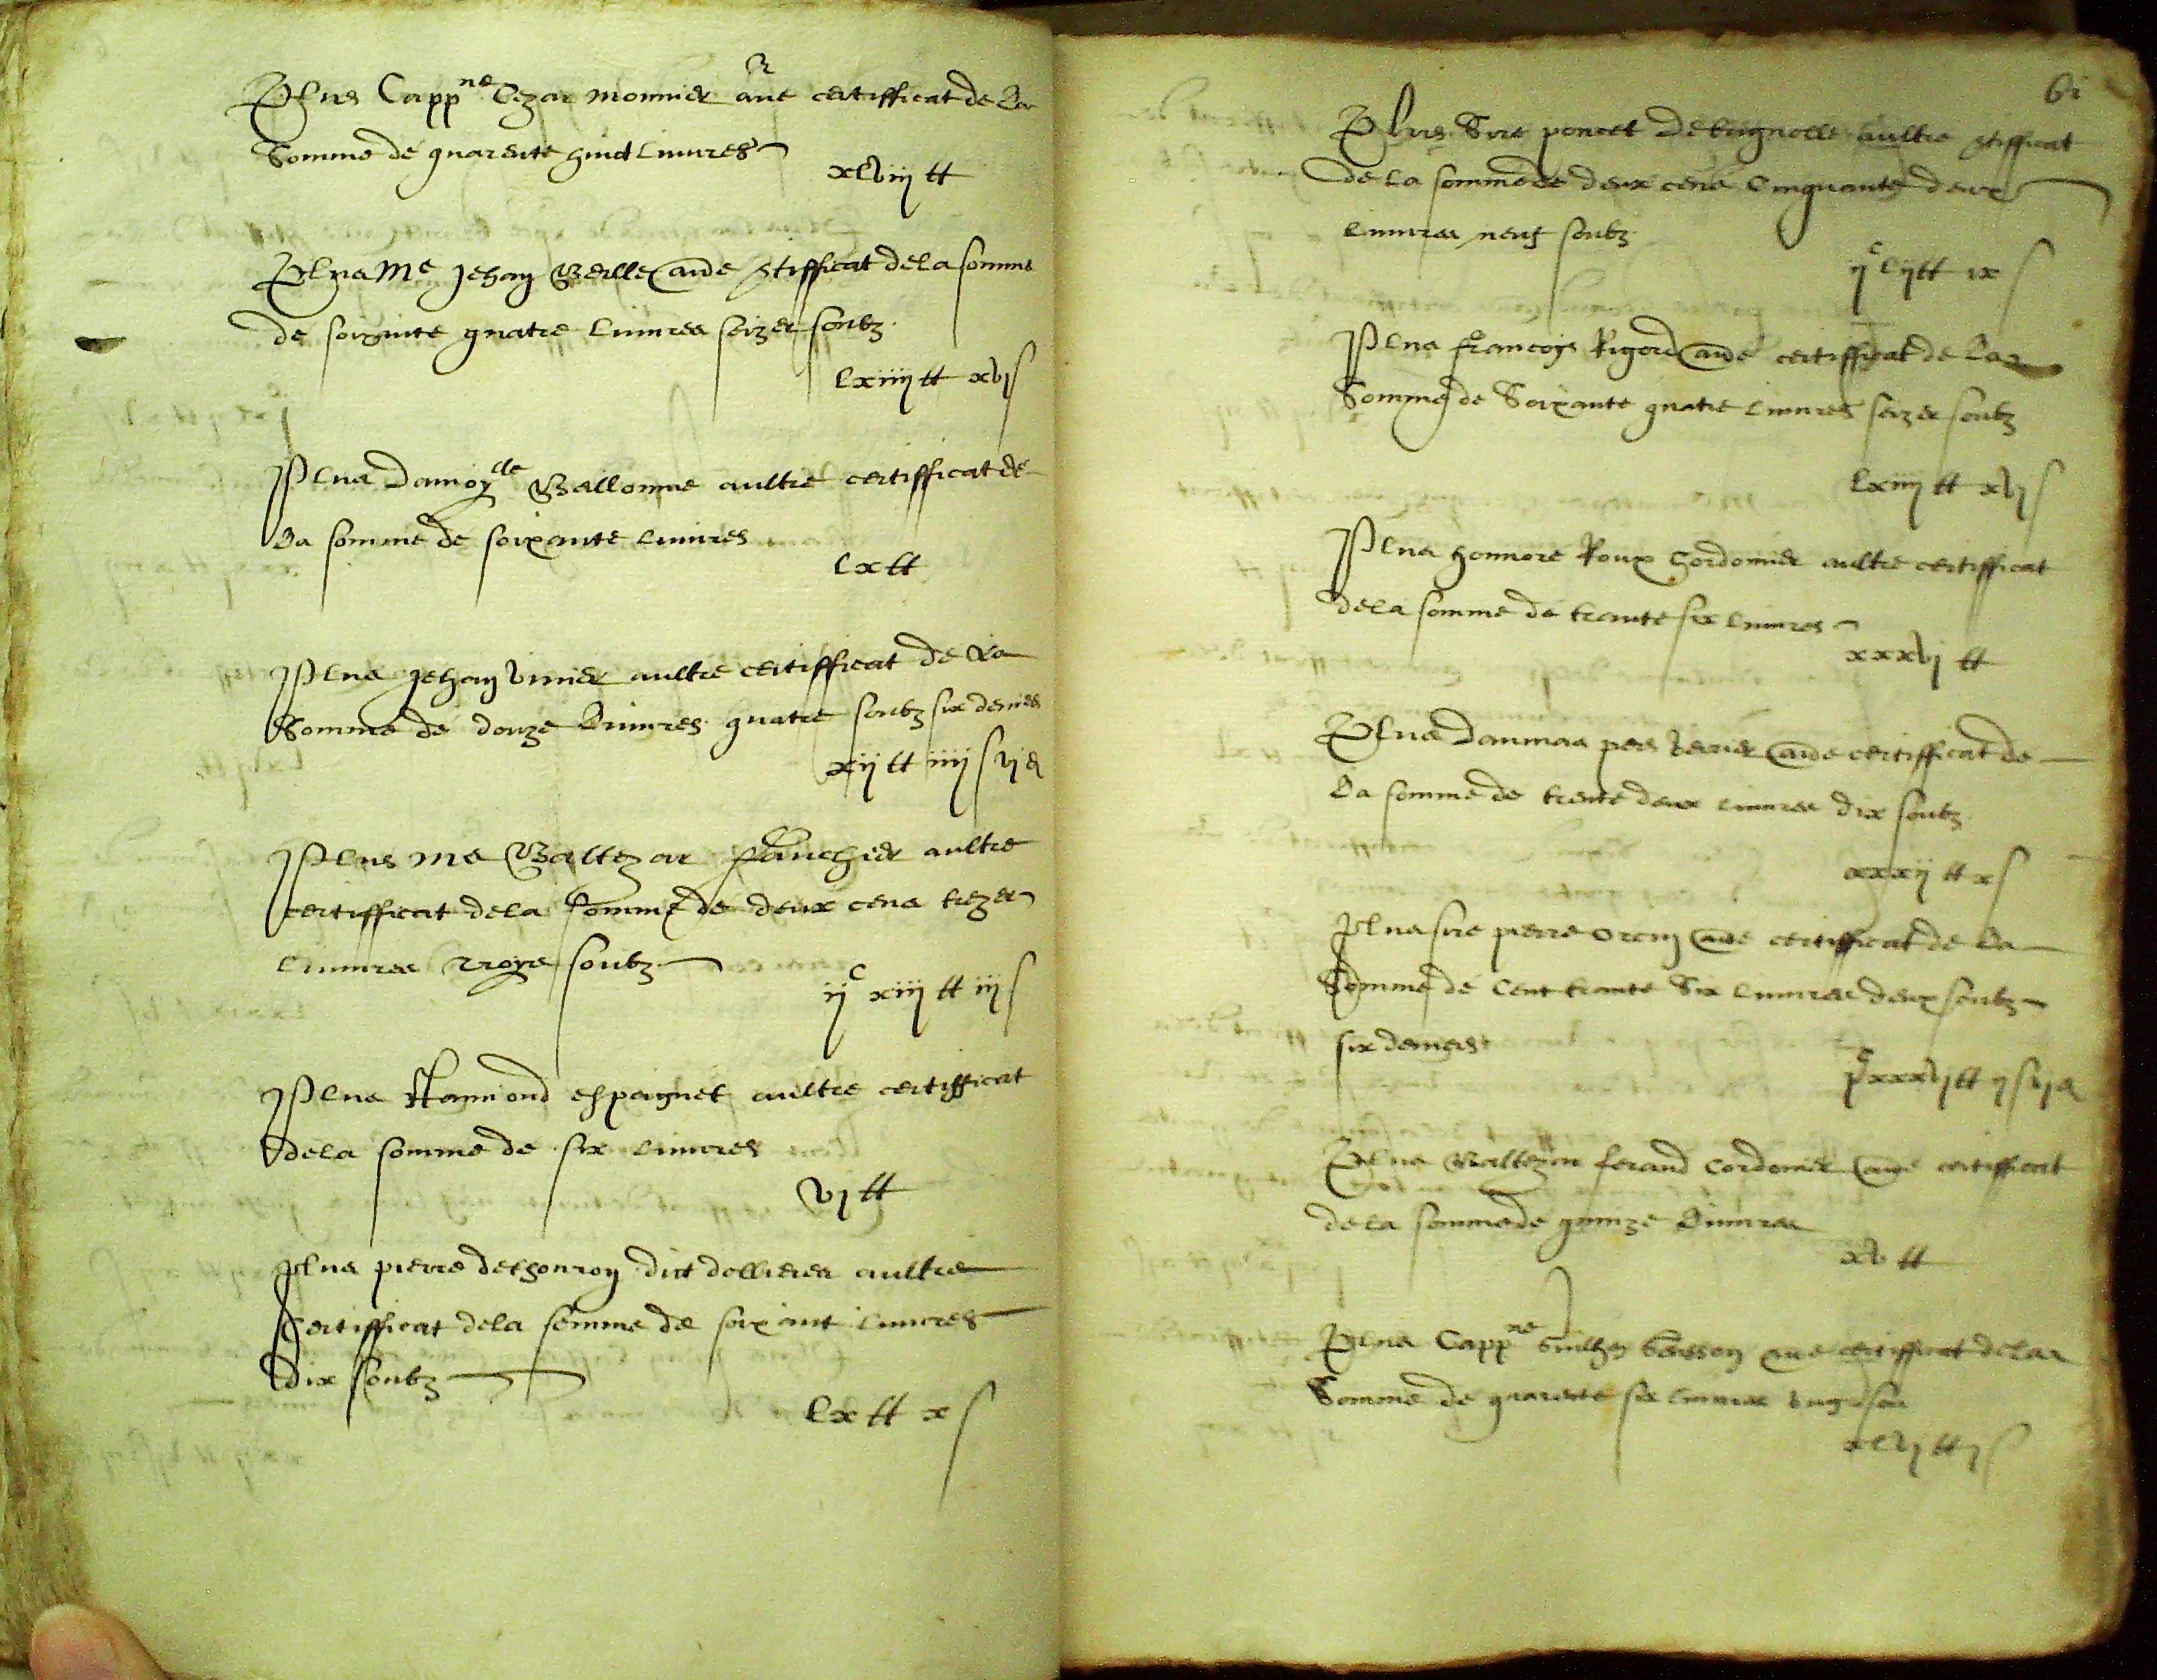 Plus Cappne Cezar monnier aue certifficat de La
Somme de quarente huict Liuures
xlviij tt
Plus Me Jehan aue certifficat de la somme
de soixante quatre Liuures seize soubz
lxiiij tt xvj s
Plus Damoylle Ballonne aultre certifficat de
La somme de soixante Liuures
lx tt
Plus Jehan aultre certifficat de La
Somme de douze Liuures quatre soubz six deniers
xij tt iiij s vj d
Plus me Baltezar fauchier aultre
certifficat de la somme de deux cens treze
Liuures troys soubz
ijc xiij tt iij s
Plus Raimond espaignet aultre certifficat
de la somme de six Liuures
vj tt
Plus pierre dethouron dict dollieres aultre
certifficat de la somme de soixant Liuures
dix soubz
lx tt x s
Plus Sire poncet aultre certifficat
de la somme de deux cens Cinquante deux
Liuures neuf soubz
ijc lij tt ix s
Plus francoys Rigord aue certifficat de La
Somme de Soixante quatre Liuures seize soubz
lxiiij tt xvj s
Plus honnore Roux Cordonnier aultre certifficat
de la somme de trante six Liuures
xxxvj tt
Plus Daumas aue certifficat de
La somme de trente deux Liuures dix soubz
xxxij tt x s
Plus sire pierre Orcin aue certifficat de La
Somme de Cent trante Six Liuures deux soubz
six deniers
jc xxxvj tt ij s vj d
Plus Baltezar ferand Cordonier aue certifficat
de la somme de quinze Liuures
xv tt
Plus Cappne aue certifficat de la
Somme de quarente six Liuures ung sou
xlvj tt j s